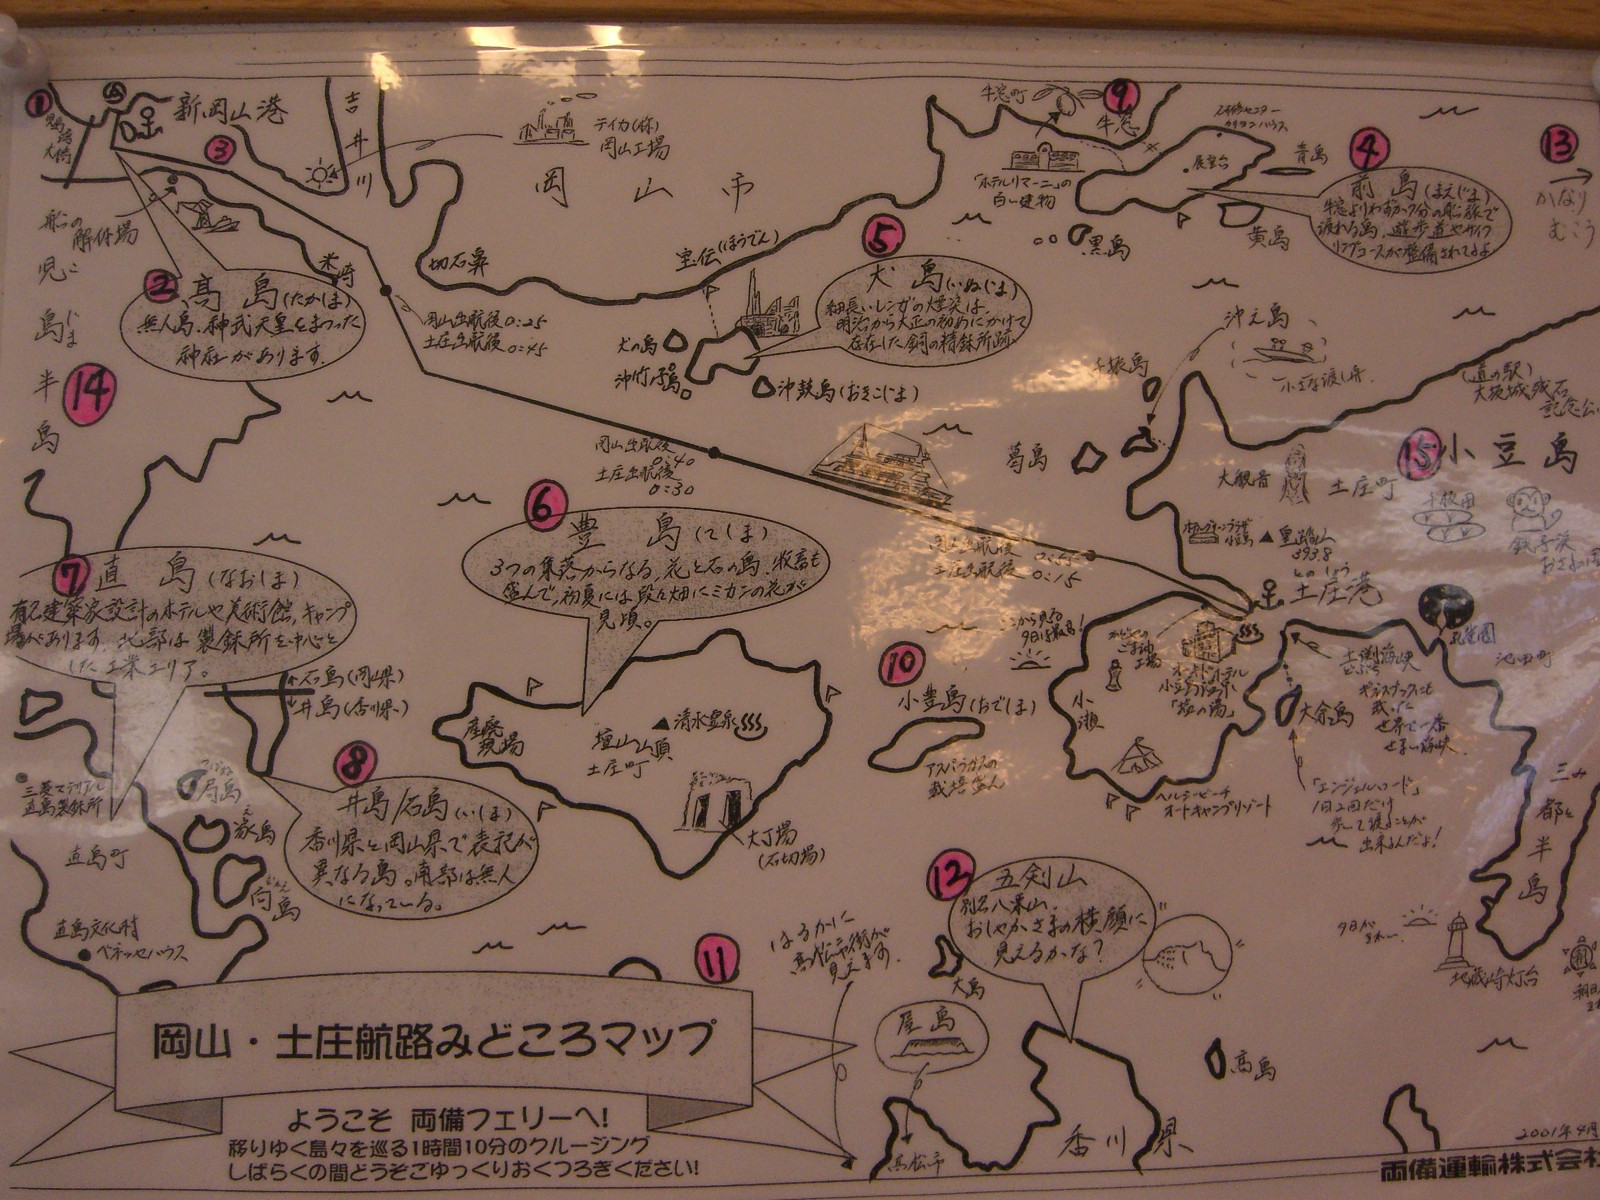 1
児島湾
大橋
新岡山港
3
吉
井
川
テイカ(株)
岡山工場
岡山市
牛窓町
9
牛窓
「ホテルリマーニ」の
白い建物
展望台
青島
4
前島(まえじま)
牛窓よりわずか7分の船旅で
渡れる島、遊歩道やサイク
リングコースが整備されてるよ
黄島
黒島
13
かなり
むこう
船の
解体場
児島半島
米崎
2
高島(たかしま)
無人島、神武天皇をまつった
神社があります。
切石鼻
宝伝(ほうでん)
岡山出航後0:25
土庄出航後0:45
5
犬島(いぬじま)
細長いレンガの煙突は、
明治から大正の初めにかけて
存在した銅の精錬所跡
犬の島
沖竹ノ子島
沖鼓島(おきこじま)
沖之島
小さな渡し舟
千振島
葛島
(道の駅)
大坂城残石
記念公
14
岡山出航後
0:40
土庄出航後
0:30
15
小豆島
大観音
土庄町
千枚田
銚子渓
おさるの国
皇踏山
393.8
岡山出航後 0:55
土庄出航後 0:15
とのしょう
土庄港
6
豊島(てしま)
3つの集落からなる、花と石の島、牧畜も
盛んで、初夏には段々畑にミカンの花が
見頃。
7
直島(なおしま)
有名建築家設計のホテルや美術館、キャンプ
場があります。北部は製錬所を中心と
した工業エリア。
石島(岡山県)
井島(香川県)
ここから見る
夕日は最高!
かどやの
ごま油
工場
オーキドホテル
小豆島温泉
「塩の湯」
孔雀園
池田町
土渕海峡
どぶち
ギネスブックにも
載った
世界で一番
せまい海峡
大余島
小瀬
10
小豊島(おでしま)
アスパラガスの
栽培盛ん
産廃
現場
壇山山頂
土庄町
清水霊泉
大丁場
(石切場)
ヘルシービーチ
オートキャンプリゾート
「エンジェルロード」
1日2回だけ
歩いて渡ることが
出来るんだよ!
三都半島
8
井島/石島(いしま)
香川県と岡山県で表記が
異なる島。南部は無人
になっている。
三菱マテリアル
直島製錬所
局島
家島
向島
直島町
直島文化村
ベネッセハウス
11
はるかに
高松に街が
見えます。
12
五剣山
別名八栗山、
おしゃかさまの横顔に
見えるかな?
大島
屋島
高島
夕日が
地蔵崎灯台
朝日
岡山・土庄航路みどころマップ
ようこそ 両備フェリーへ!
移りゆく島々を巡る1時間10分のクルージング
しばらくの間どうぞごゆっくりおくつろぎください!
高松市
香川県
2001年4月
両備運輸株式会社